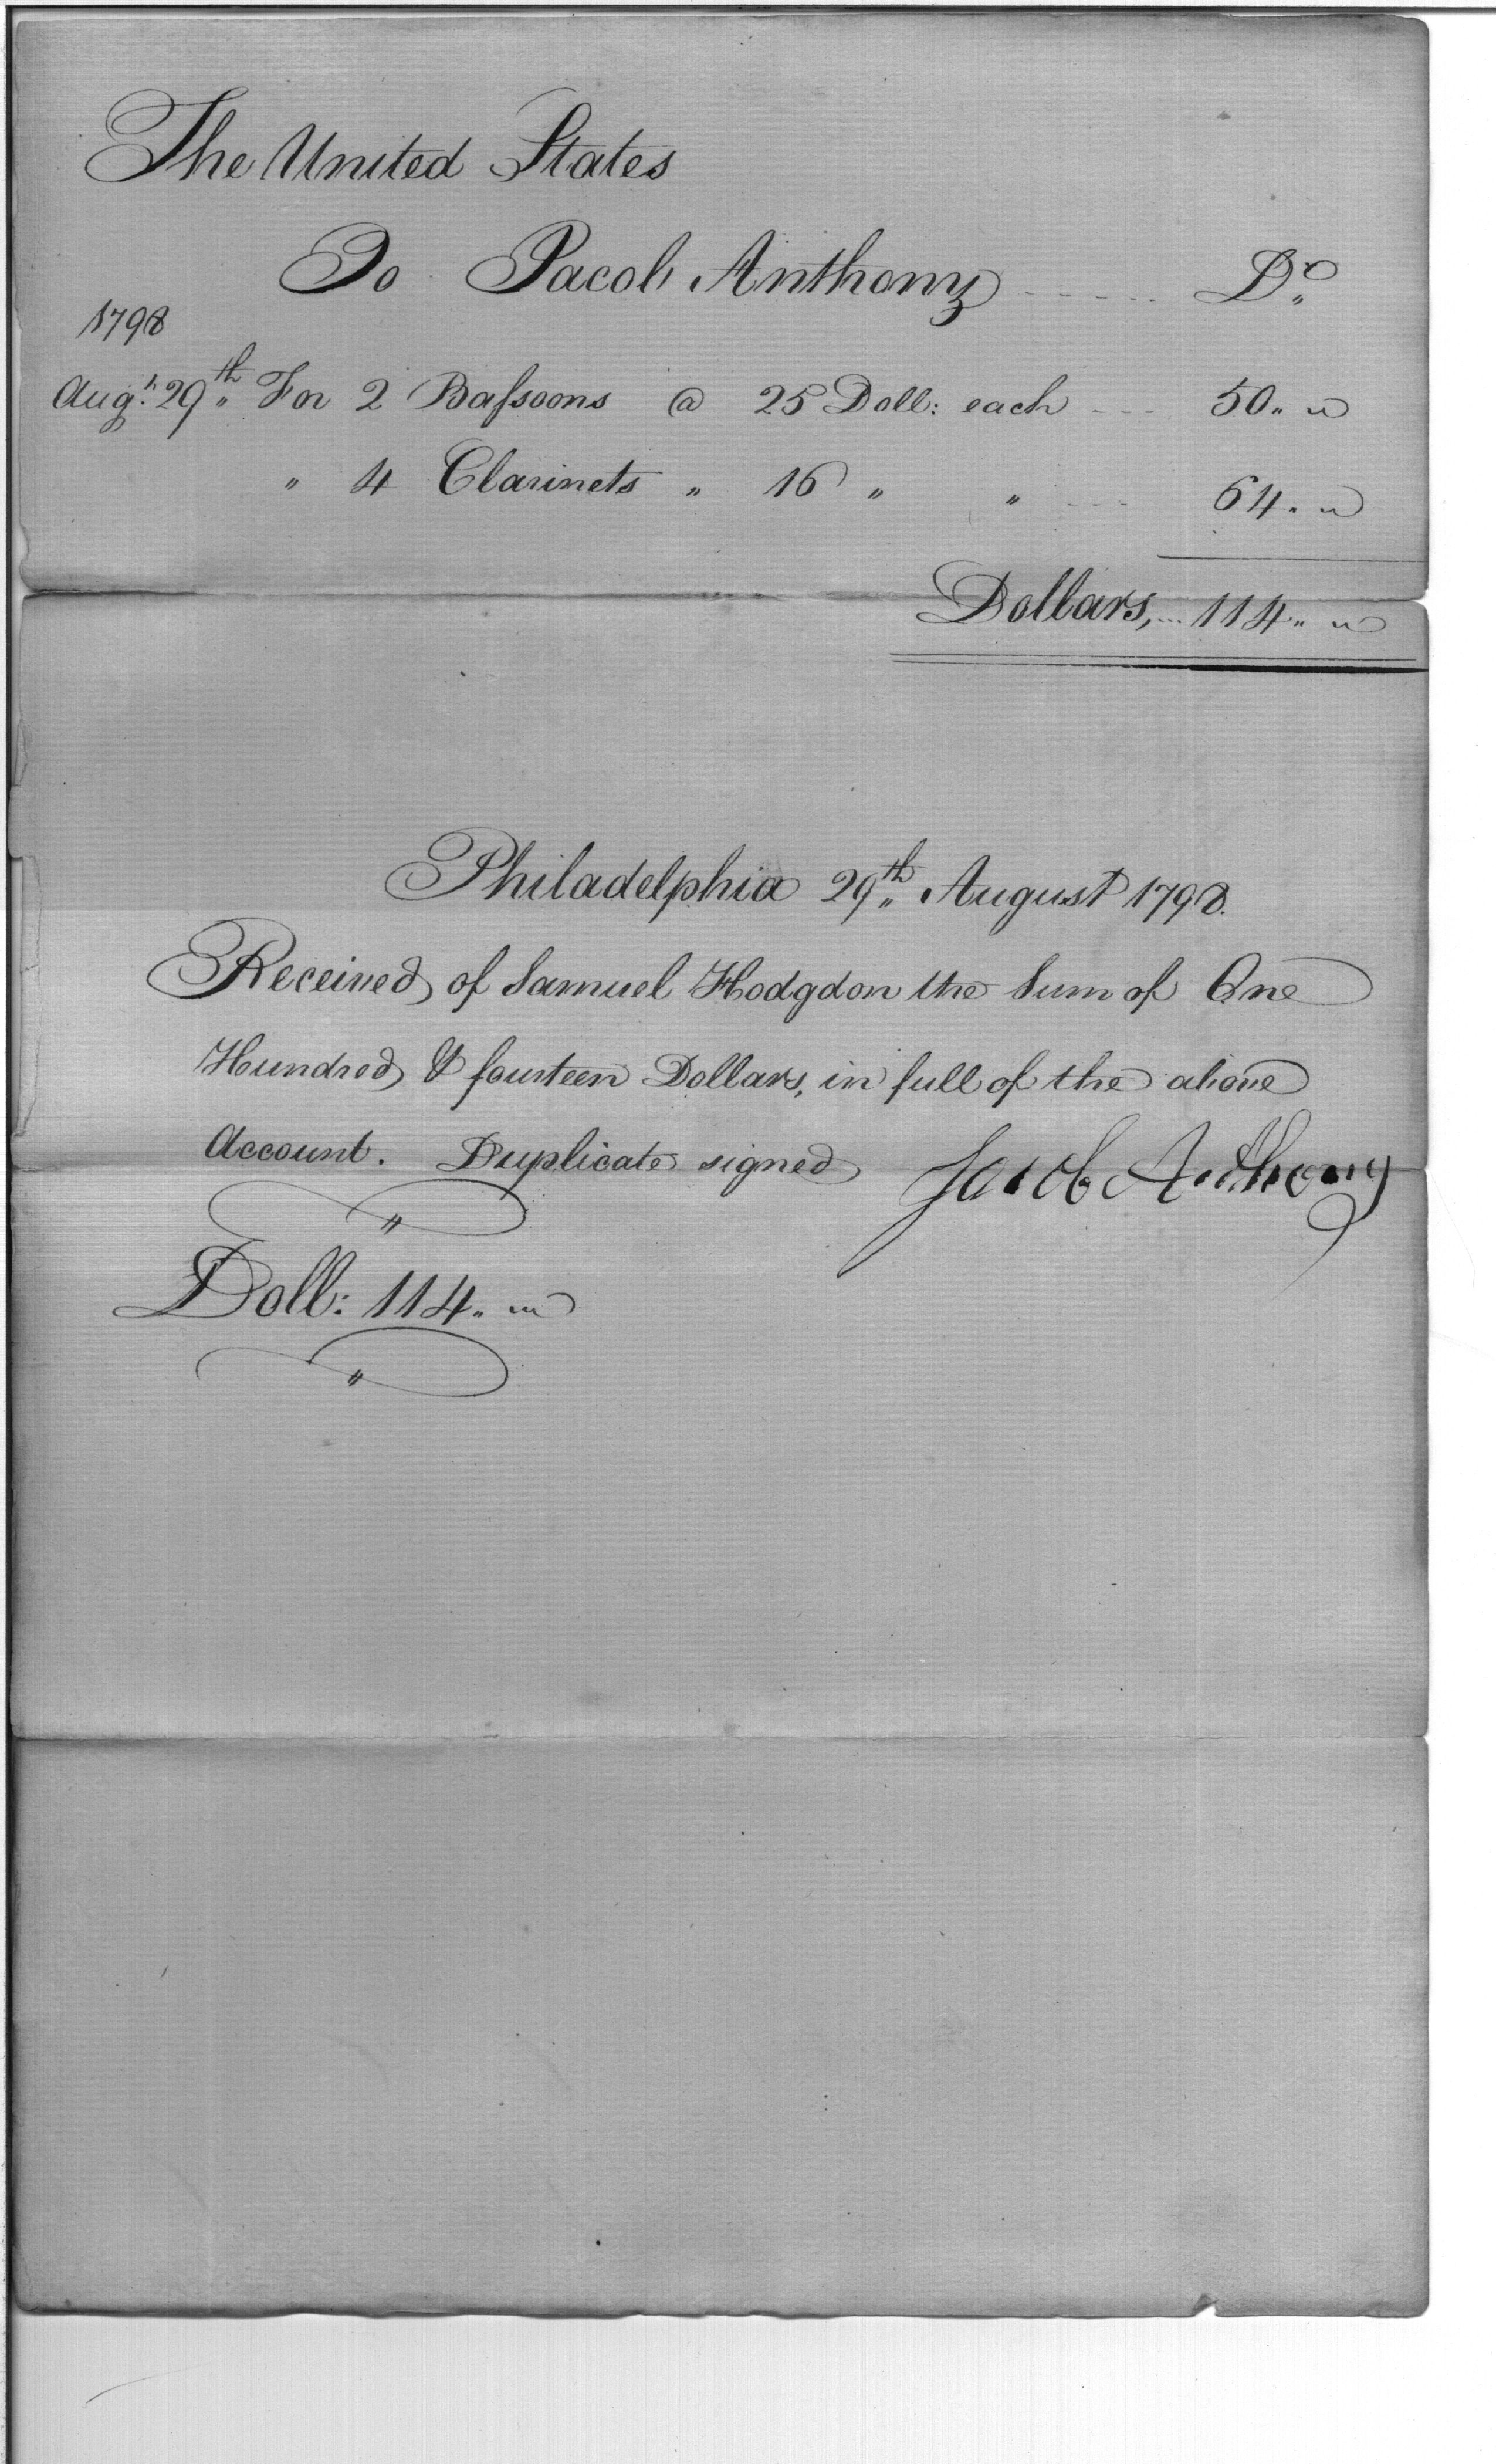 The United States
To Jacob Anthony ----- Dr.
1798
Augt. 29th For 2 Baſsoons @ 25 Doll: each --- 50.. "
" 4 Clarinets " 16 " " --- 64. "
Dollars,... 114.. "
Philadelphia 29th August 1798.
Received of Samuel Hodgdon the Sum of One
Hundred & fourteen Dollars, in full of the above
Account. Duplicate signed Jacob Anthony
Doll: 114.. "